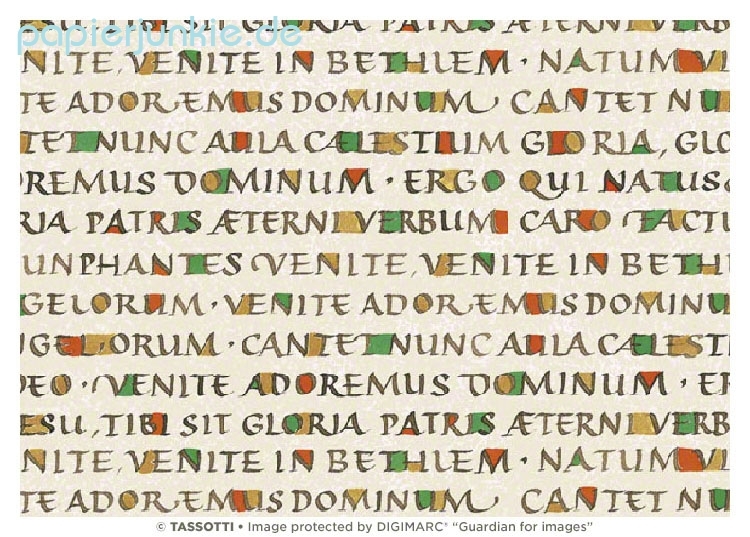 papierjunkie.de
NITE, VENITE IN BETHLEM · NATUM VI
TE ADOREMUS DOMINUM CANTET NU
TET NUNC AULA CÆLESTIUM GLORIA, GLO
OREMUS DOMINUM · ERGO QUI NATUS
RIA PATRIS ÆTERNI VERBUM CARO FACTU
UNPHANTES VENITE, VENITE IN BETHL
GELORUM · VENITE ADOREMUS DOMINU
NGELORUM · CANTET NUNC AULA CÆLESTI
DEO · VENITE ADOREMUS DOMINUM · ER
ESU, TIBI SIT GLORIA PATRIS ÆTERNI VERB
NITE, VENITE IN BETHLEM · NATUM VI
TE ADOREMUS DOMINUM CANTET NU
© TASSOTTI • Image protected by DIGIMARC® “Guardian for images”